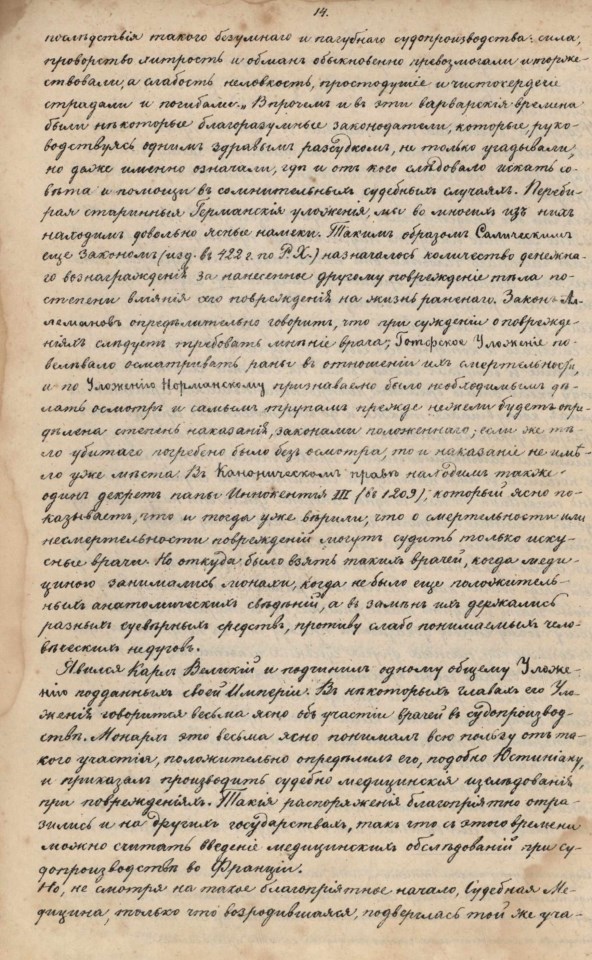 14.
послѣдствія такого безумнаго и пагубнаго судопроизводства: сила,
проворство хитрость и обманъ обыкновенно превозмогали и торже-
ствовали, а слабость неловкость, простодушіе и чистосердечіе
страдали и погибали." Впрочемъ и въ эти варварскія времена
были нѣкоторые благоразумные законодатели, которые, руко-
водствуясь однимъ здравымъ разсудкомъ, не только угадывали,
но даже именно означали, гдѣ и отъ кого слѣдовало искать со-
вѣта и помощи въ сомнительныхъ судебныхъ случаяхъ. Переби-
рая старинныя Германскія уложенія, мы во многихъ изъ нихъ
находимъ довольно ясные намеки. Такимъ образомъ Салическимъ
еще Закономъ (изд. въ 422 г. по Р.Х.) назначалось количество денежна-
го вознагражденія за нанесенное другому поврежденіе тѣла по-
степени вліянія его поврежденія на жизнь раненаго. Законъ Ал-
лемановъ опредѣлительно говоритъ, что при сужденіи о поврежде-
ніяхъ слѣдуетъ требовать мнѣніе врача; Готфское Уложеніе по-
велѣвало осматривать раны въ отношеніи ихъ смертельности,
и по Уложенію Норманскому признаваемо было необходимымъ дѣ-
лать осмотръ и самымъ трупамъ прежде нежели будетъ опре-
дѣлена степень наказанія, законами положеннаго; если же тѣ-
ло убитаго погребено было безъ осмотра, то и наказаніе не имѣ-
ло уже мѣста. Въ Каноническомъ правѣ находимъ также
одинъ декретъ папы Иннокентія III (въ 1209), который ясно по-
казываетъ, что и тогда уже вѣрили, что о смертельности или
несмертельности поврежденій могутъ судить только иску-
сные врачи. Но откуда было взять такихъ врачей, когда меди-
циною занимались монахи, когда не было еще положитель-
ныхъ анатомическихъ свѣдѣній, а въ замѣнъ ихъ держались
разныхъ суевѣрныхъ средствъ, противу слабо понимаемыхъ чело-
вѣческихъ недуговъ.
Явился Карлъ Великій и подчинилъ одному общему Уложе-
нію подданныхъ своей Имперіи. Въ нѣкоторыхъ главахъ его Уло-
женія говорится весьма ясно объ участіи врачей въ судопроизвод-
ствѣ. Монархъ это весьма ясно понималъ всю пользу отъ та-
кого участія, положительно опредѣлилъ его, подобно Юстиніану,
и приказалъ производить судебно медицинскія изслѣдованія
при поврежденіяхъ. Такія распоряженія благопріятно отра-
зились и на другихъ государствахъ, такъ что съ этого времени
можно считать введеніе медицинскихъ обслѣдованій при су-
допроизводствѣ во Франціи.
Но, не смотря на такое благопріятное начало, Судебная Ме-
дицина, только что возродившаяся, подверглась той же уча-